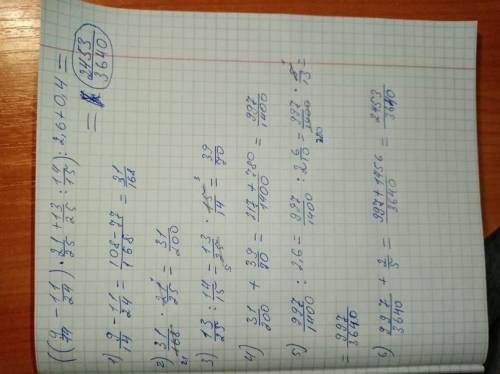 ((9/14 - 11/24) · 21/25 + 13/25 : 14/15) : 2,6 + 0,4 =
= 2453/3640
1) 9/14 - 11/24 = 108-77/168 = 31/168
2) 31/168 · 21/25 = 31/200
3) 13/25 : 14/15 = 13/25 · 15/14 = 39/70
4) 31/200 + 39/70 = 217+780/1400 = 997/1400
5) 997/1400 : 2,6 = 997/1400 : 2 6/10 = 997/1400 · 5/13 =
= 997/3640
6) 997/3640 + 2/5 = 997+1456/3640 = 2453/3640